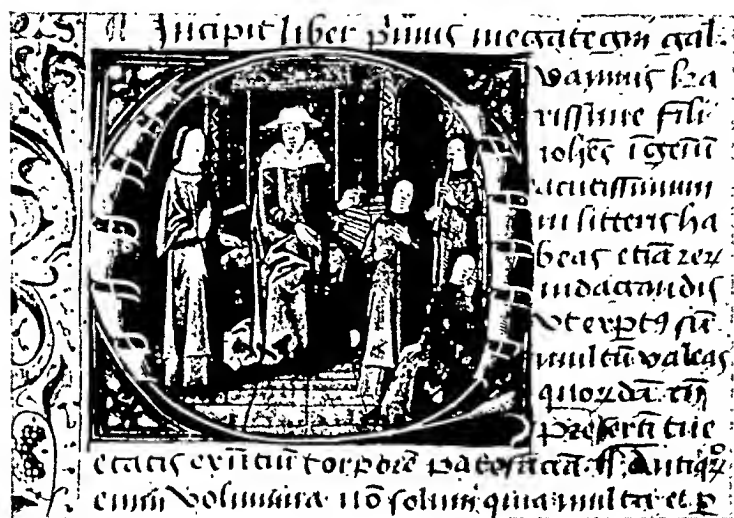 Incipit liber p̄imus megategni gal.
vamuis ka
rissime fili
ioh̄es īgeniū
acutissimum
in litteris ha
beas etiā reꝝ
indagandis
vt expt9 sū
multū valeas
quoꝝdā tn̄
presertī tue
etatis
enim volumina nō solum quia multa et ꝑ